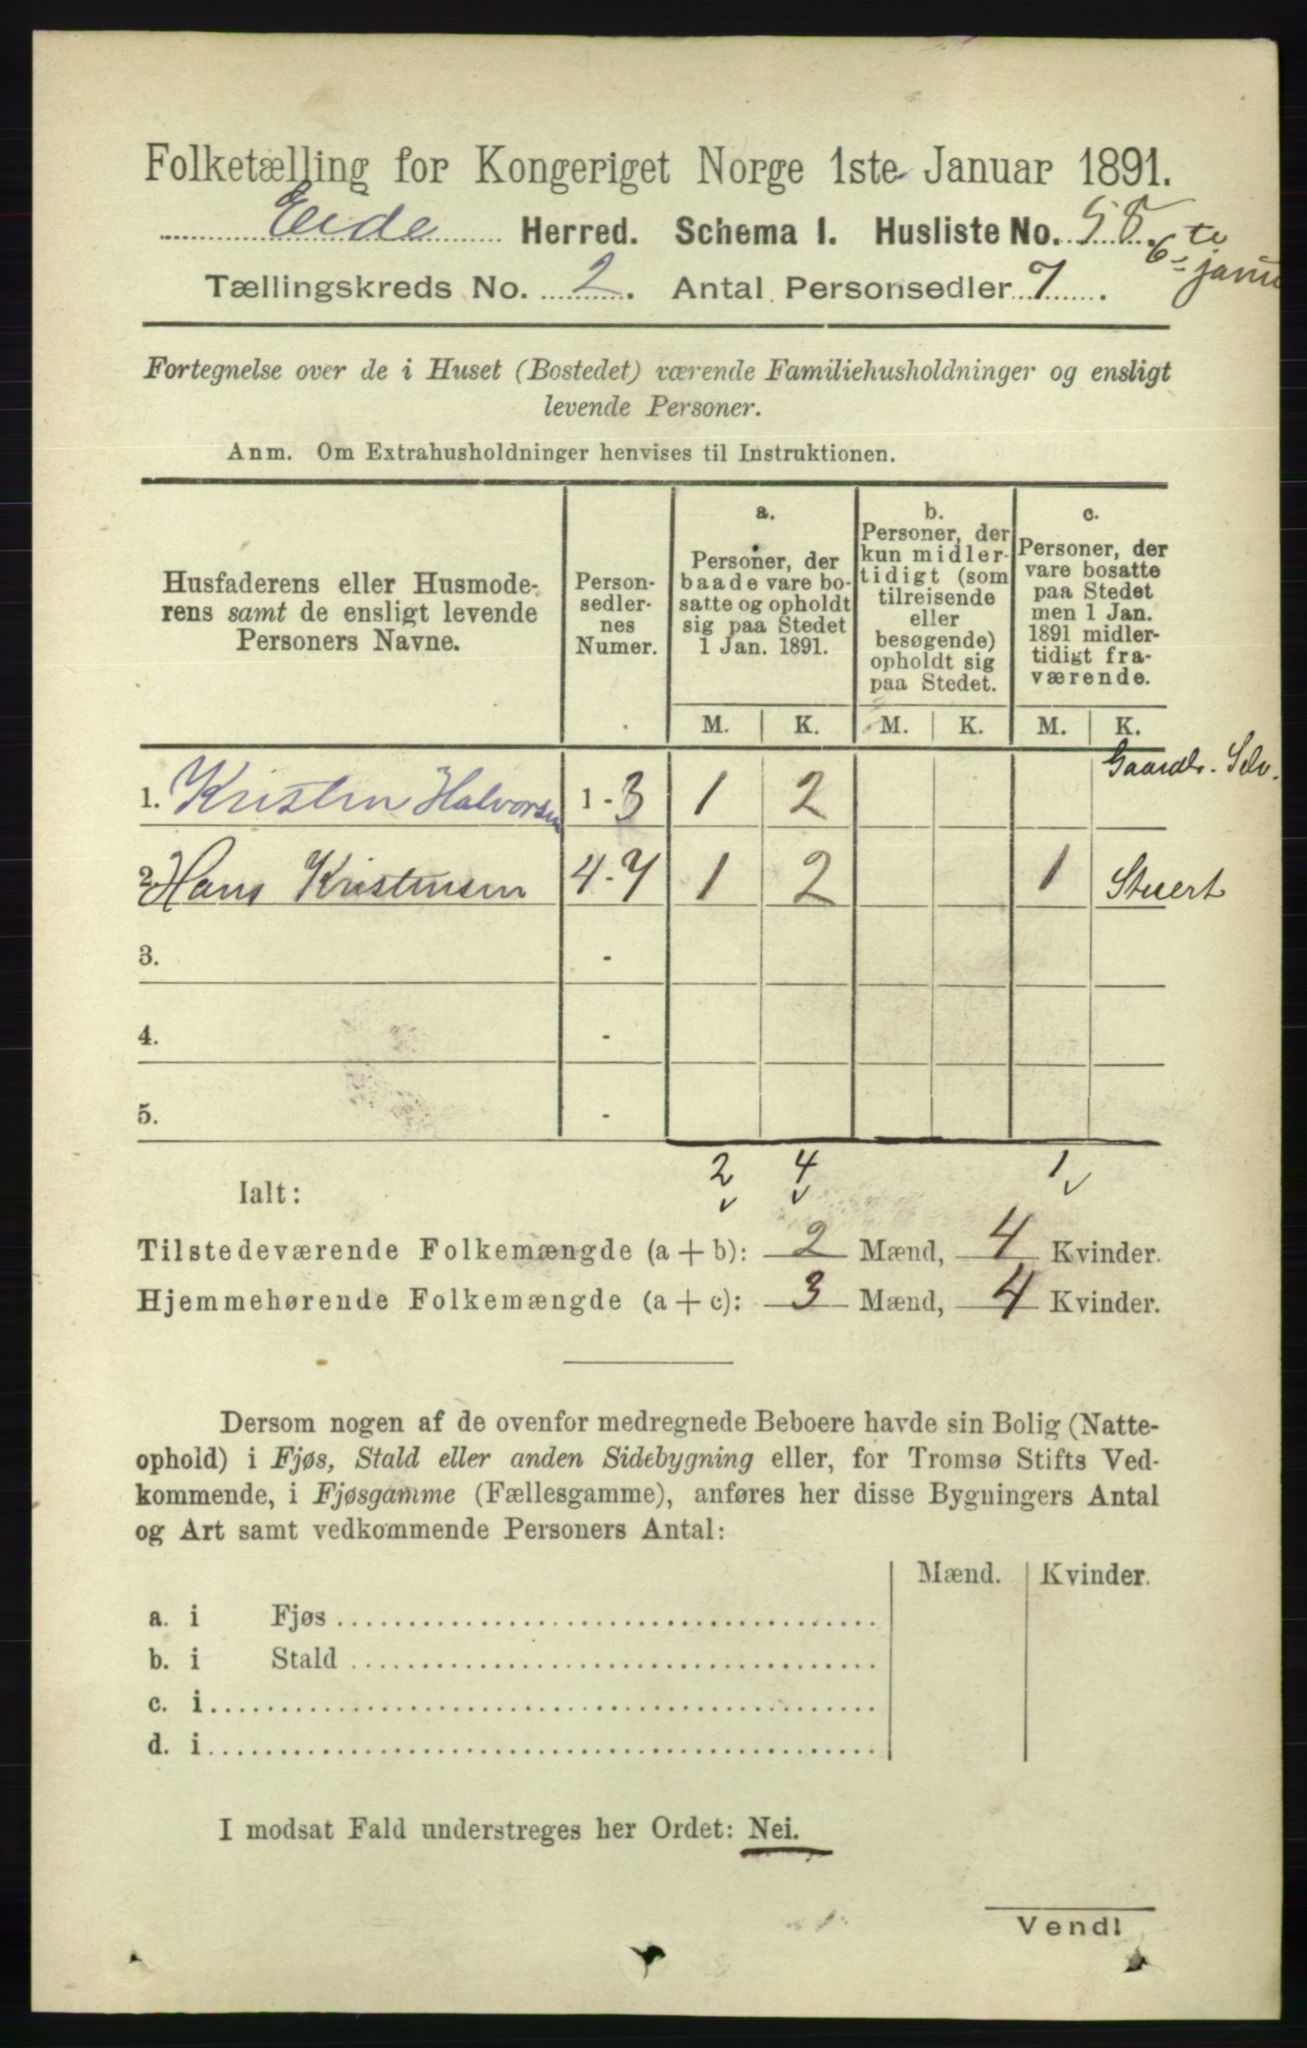 Folketælling for Kongeriget Norge 1ste Januar 1891.
Eide Herred. Schema I. Husliste No. 58.
6te janu
Tællingskreds No. 2. Antal Personsedler 7.
Fortegnelse over de i Huset (Bostedet) værende Familiehusholdninger og ensligt
levende Personer.
Anm. Om Extrahusholdninger henvises til Instruktionen.
Husfaderens eller Husmode-
rens samt de ensligt levende
Personers Navne.
Person-
sedler-
nes
Numer.
a.
Personer, der
baade vare bo-
satte og opholdt
sig paa Stedet
1 Jan. 1891.
b.
Personer, der
kun midler-
tidigt (som
tilreisende
eller
besøgende)
opholdt sig
paa Stedet.
c.
Personer, der
vare bosatte
paa Stedet
men 1 Jan.
1891 midler-
tidigt fra-
værende.
M. K. M. K. M. K.
1. Kristen Halvorsen 1 - 3 1 2 Gaardb. Selv.
2. Hans Kristensen 4 - 7 1 2 1 Stuert
3. -
4. -
5. -
2 4 1
Ialt:
Tilstedeværende Folkemængde (a + b): 2 Mænd, 4 Kvinder.
Hjemmehørende Folkemængde (a + c): 3 Mænd, 4 Kvinder.
Dersom nogen af de ovenfor medregnede Beboere havde sin Bolig (Natte-
ophold) i Fjøs, Stald eller anden Sidebygning eller, for Tromsø Stifts Ved-
kommende, i Fjøsgamme (Fællesgamme), anføres her disse Bygningers Antal
og Art samt vedkommende Personers Antal:
Mænd. Kvinder.
a. i Fjøs
b. i Stald
c. i
d. i
I modsat Fald understreges her Ordet: Nei.
Vend!